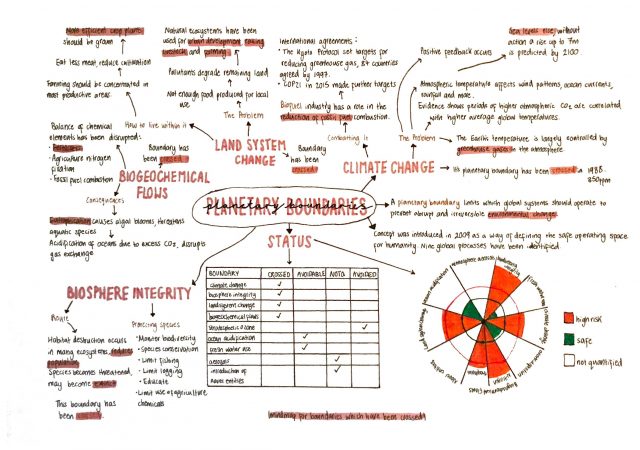 Most efficient crop plants
should be grown
Eat less meat, reduce cultivation
Farming should be concentrated in
most productive areas
How to live within it
Natural ecosystems have been
used for urban development, making
livestock and farming.
Pollutants degrade remaining land
Not enough food produced for local
use
The Problem
LAND SYSTEM
CHANGE
Boundary
has been
crossed
International agreements:
• The Kyoto Protocol set targets for
reducing greenhouse gas, 84 countries
agreed by 1997.
• COP21 in 2015 made further targets
Biofuel industry has a role in the
reduction of fossil fuel combustion.
Combatting It
CLIMATE CHANGE
The Problem
Positive feedback occurs
Sea levels rise, without
action a rise up to 7m
is predicted by 2100.
Atmospheric temperature affects wind patterns, ocean currents,
rainfall and more.
Evidence shows periods of higher atmospheric CO2 are correlated
with higher average global temperatures.
The Earth's temperature is largely controlled by
greenhouse gases in the atmosphere
Its planetary boundary has been crossed in 1988.
350ppm
Balance of chemical
elements has been disrupted:
• Fertilisers
• Agriculture in nitrogen
fixation
• Fossil fuel combustion
Boundary has
been crossed
BIOGEOCHEMICAL
FLOWS
Consequences
Eutrophication causes algal blooms, threatens
aquatic species
Acidification of oceans due to excess CO2, disrupts
gas exchange.
PLANETARY BOUNDARIES
planetary boundaries
A planetary boundary limits which global systems should operate to
prevent abrupt and irreversible environmental change.
Concept was introduced in 2009 as a way of defining the safe operating space
for humanity. Nine global processes have been identified.
STATUS
BOUNDARY CROSSED AVOIDABLE NOT Q AVOIDED
climate change ✓
biosphere integrity ✓
land system change ✓
biogeochemical flows ✓
stratospheric ozone ✓
ocean acidification ✓
fresh water use ✓
aerosols ✓
introduction of
novel entities ✓
BIOSPHERE INTEGRITY
Route
Habitat destruction occurs
in many ecosystems, reduces
population
Species become threatened,
may become extinct
This boundary has
been crossed
Protecting Species
• Monitor biodiversity
• Species conservation
• Limit fishing
• Limit logging
• Educate
• Limit use of agriculture
chemicals
high risk
safe
not quantified
mindmap for boundaries which have been crossed